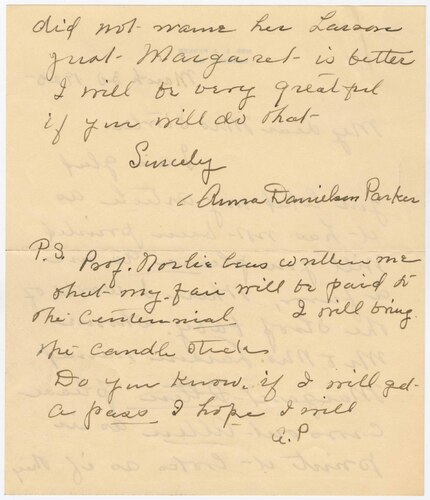 did not name her Larson
just Margaret is better
I will be very grateful
if you will do that
Sincerely
Anna Danielson Parker
P.S. Prof. Norlie has written me
that my fair will be paid to
the Centennial I will bring
the candle sticks
Do you know, if I will get
a pass I hope I will
A.P